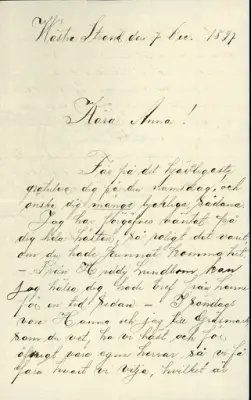 Västra Strand den 7 Dec. 1897
Kära Anna!
Får på det hjärtligaste
gratulera dig på din namnsdag, och
önska dig många lyckliga sådana.
Jag har förgäfves väntat på
dig hela hösten, så roligt det varit
om du hade kunnat komma hit
– Från Huldy Lundbom kan
jag hälsa dig, hade bref från henne
för en tid sedan – I söndags
voro Hanna och jag till
som du vet, ha vi häst och för
öfrigt vara egna herrar så vi få
fara hvart vi vilja, hvilket är